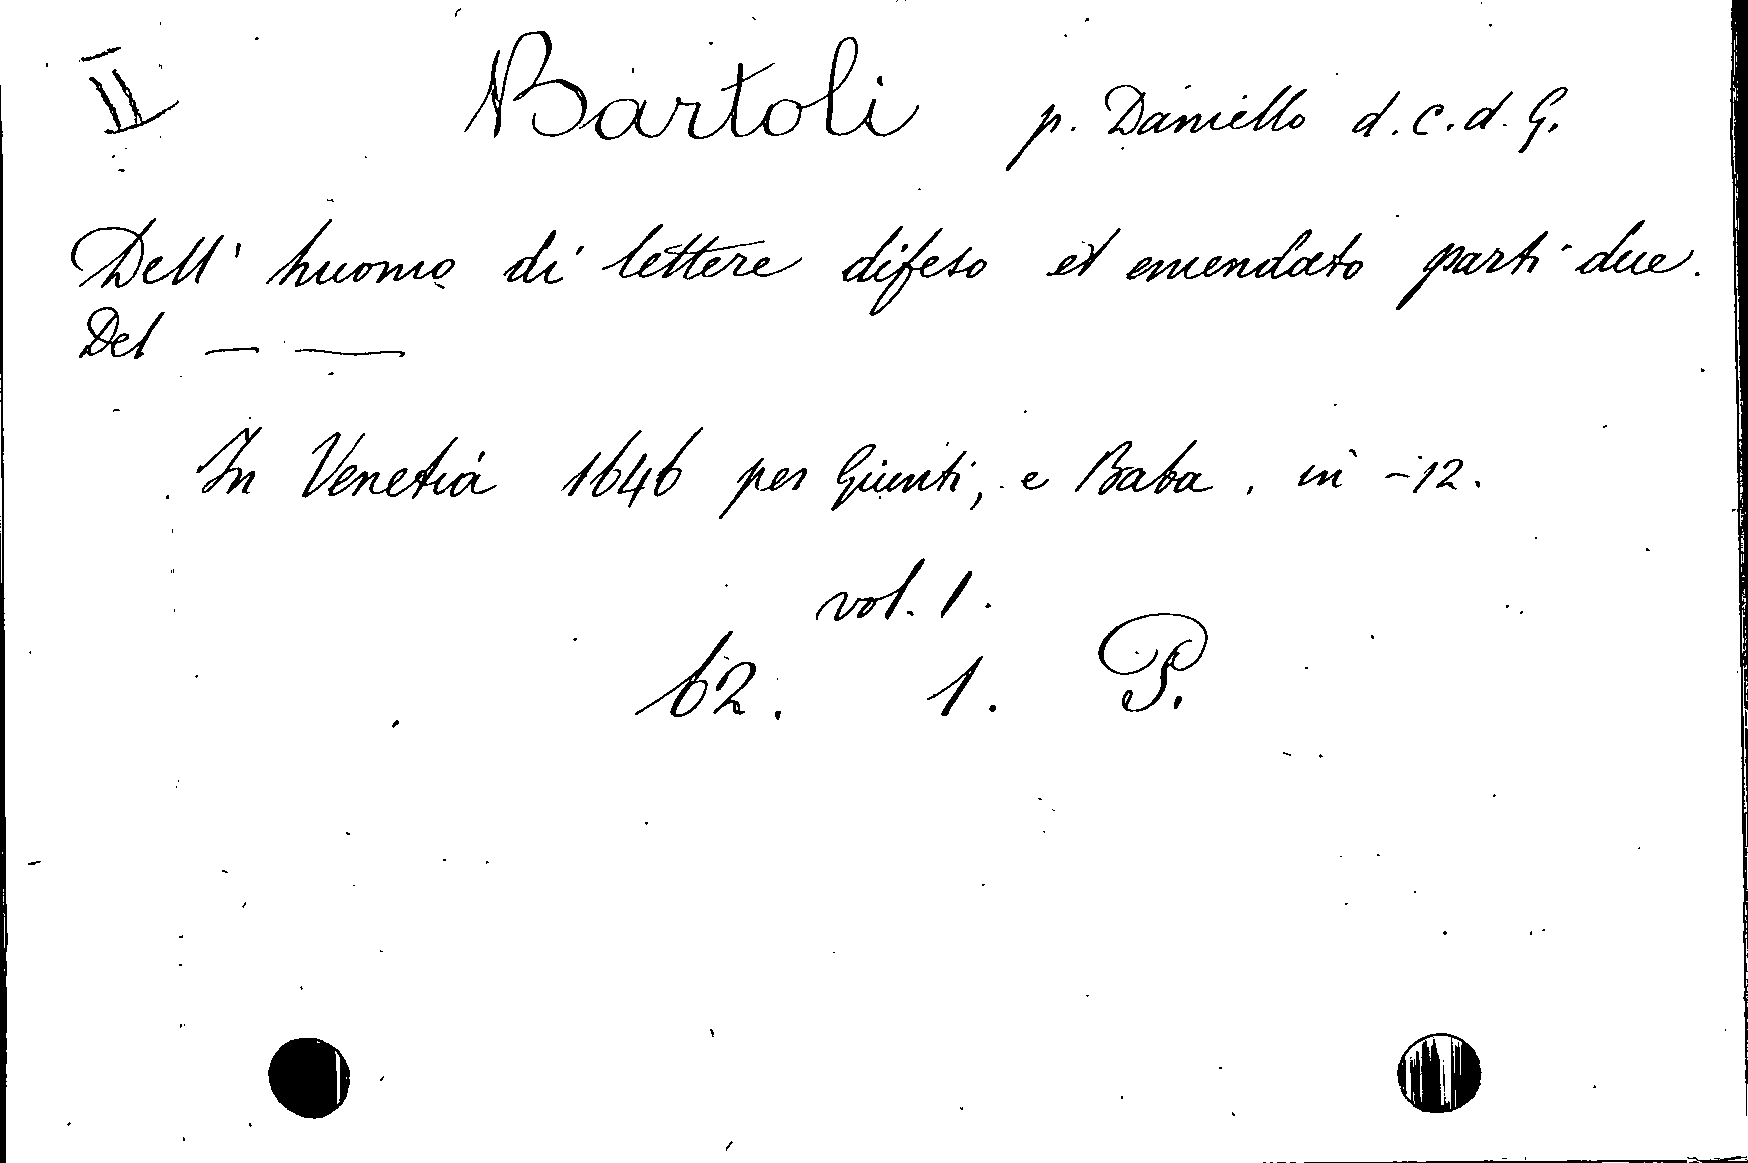 II Bartoli p. Daniello d. C. d. G.
Dell' huomo di lettere difeso et emendato parti due.
Del — —
In Venetia 1646 per Giunti, e Baba. in -12.
vol. 1.
62. 1. P.